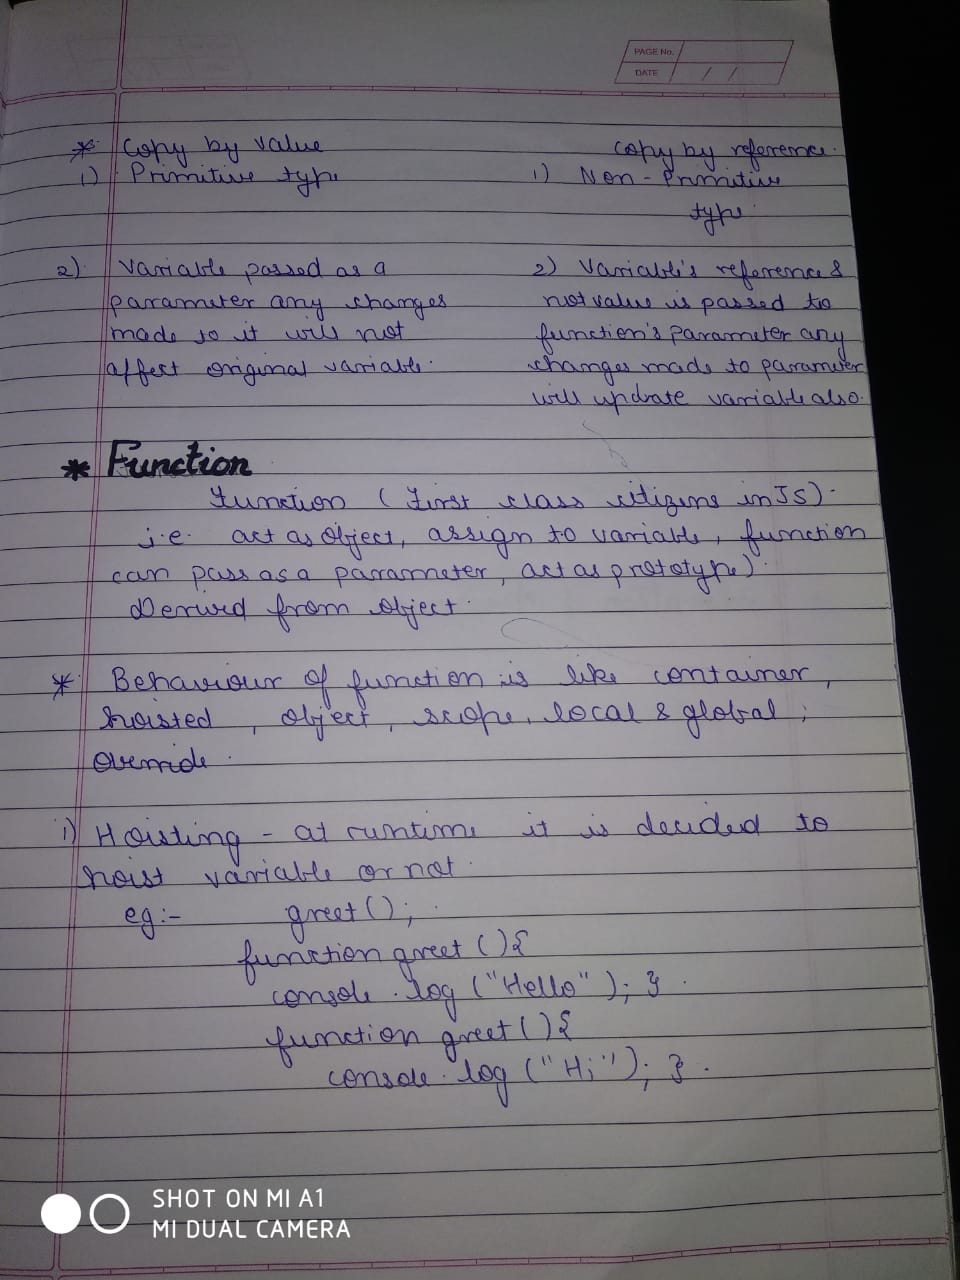 PAGE No.
DATE / /
* Copy by value
1) Primitive type
2) Variable passed as a
parameter any changes
made to it will not
affect original variable.
copy by reference.
1) Non-Primitive
type.
2) Variable's reference &
not value is passed to
function's parameter any
changes made to parameter
will update variable also.
* Function
Function (First class citizens in JS).
i.e. act as object, assign to variable, function
can pass as a parameter, act as prototype).
Derived from object.
* Behaviour of function is like container,
hoisted, object, scope, local & global,
override.
i) Hoisting - at runtime it is decided to
hoist variable or not.
eg:- greet();
function greet(){
console.log("Hello"); }
function greet(){
console.log("Hi"); }
SHOT ON MI A1
MI DUAL CAMERA